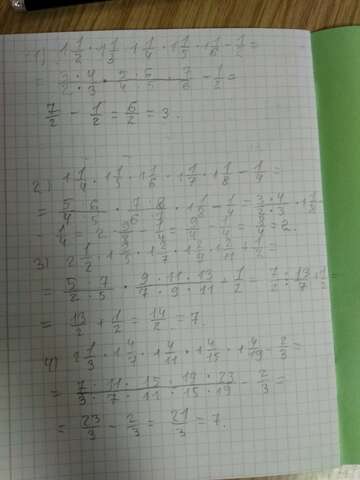 1) 1 1/2 · 1 1/3 · 1 1/4 · 1 1/5 · 1 1/6 - 1/2 =
= 3·4/2·3 · 5·6/4·5 · 7/6 - 1/2 =
7/2 - 1/2 = 6/2 = 3.
2) 1 1/4 · 1 1/5 · 1 1/6 · 1 1/7 · 1 1/8 - 1/4 =
= 5/4 · 6/5 · 7·8/6·7 · 1 1/8 - 1/4 = 3·4/2·3 · 1 1/8
- 1/4 = 2 · 9/8 - 1/4 = 9/4 - 1/4 = 8/4 = 2.
3) 2 1/2 · 1 2/5 · 1 2/7 · 1 2/9 · 1 2/11 + 1/2 =
= 5·7/2·5 · 9·11·13/7·9·11 + 1/2 = 7/2 · 13/7 + 1/2
= 13/2 + 1/2 = 14/2 = 7.
4) 2 1/3 · 1 4/7 · 1 4/11 · 1 4/15 · 1 4/19 - 2/3 =
= 7·11·15·19·23/3·7·11·15·19 - 2/3 =
= 23/3 - 2/3 = 21/3 = 7.